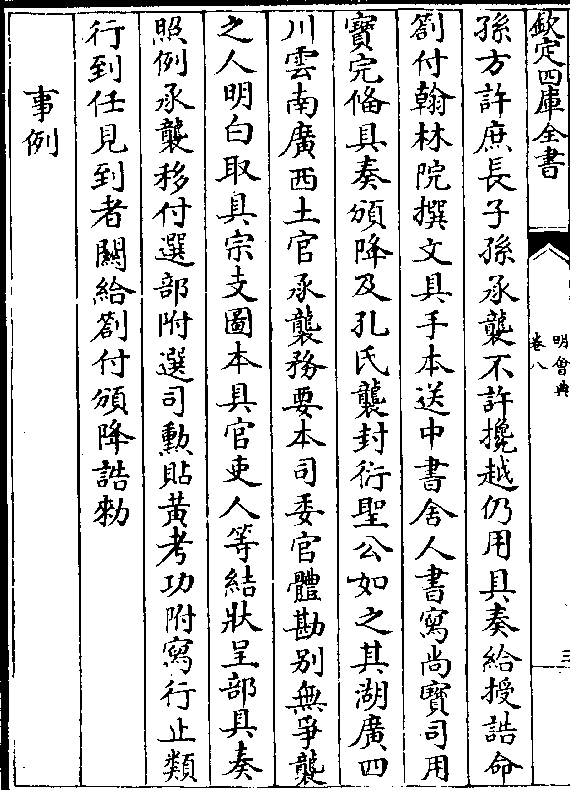 欽定四庫全書
明會典
卷八
三
孫方許庶長子孫承襲不許攙越仍用具奏給授誥命
劄付翰林院撰文具手本送中書舍人書寫尚寶司用
寳完俻具奏頒降及孔氏襲封衍聖公如之其湖廣四
川雲南廣西土官承襲務要本司委官體勘别無爭襲
之人明白取具宗支圖本具官吏人等結狀呈部具奏
照例承襲移付選部附選司勲貼黄考功附寫行止類
行到任見到者關給劄付頒降誥勅
事例